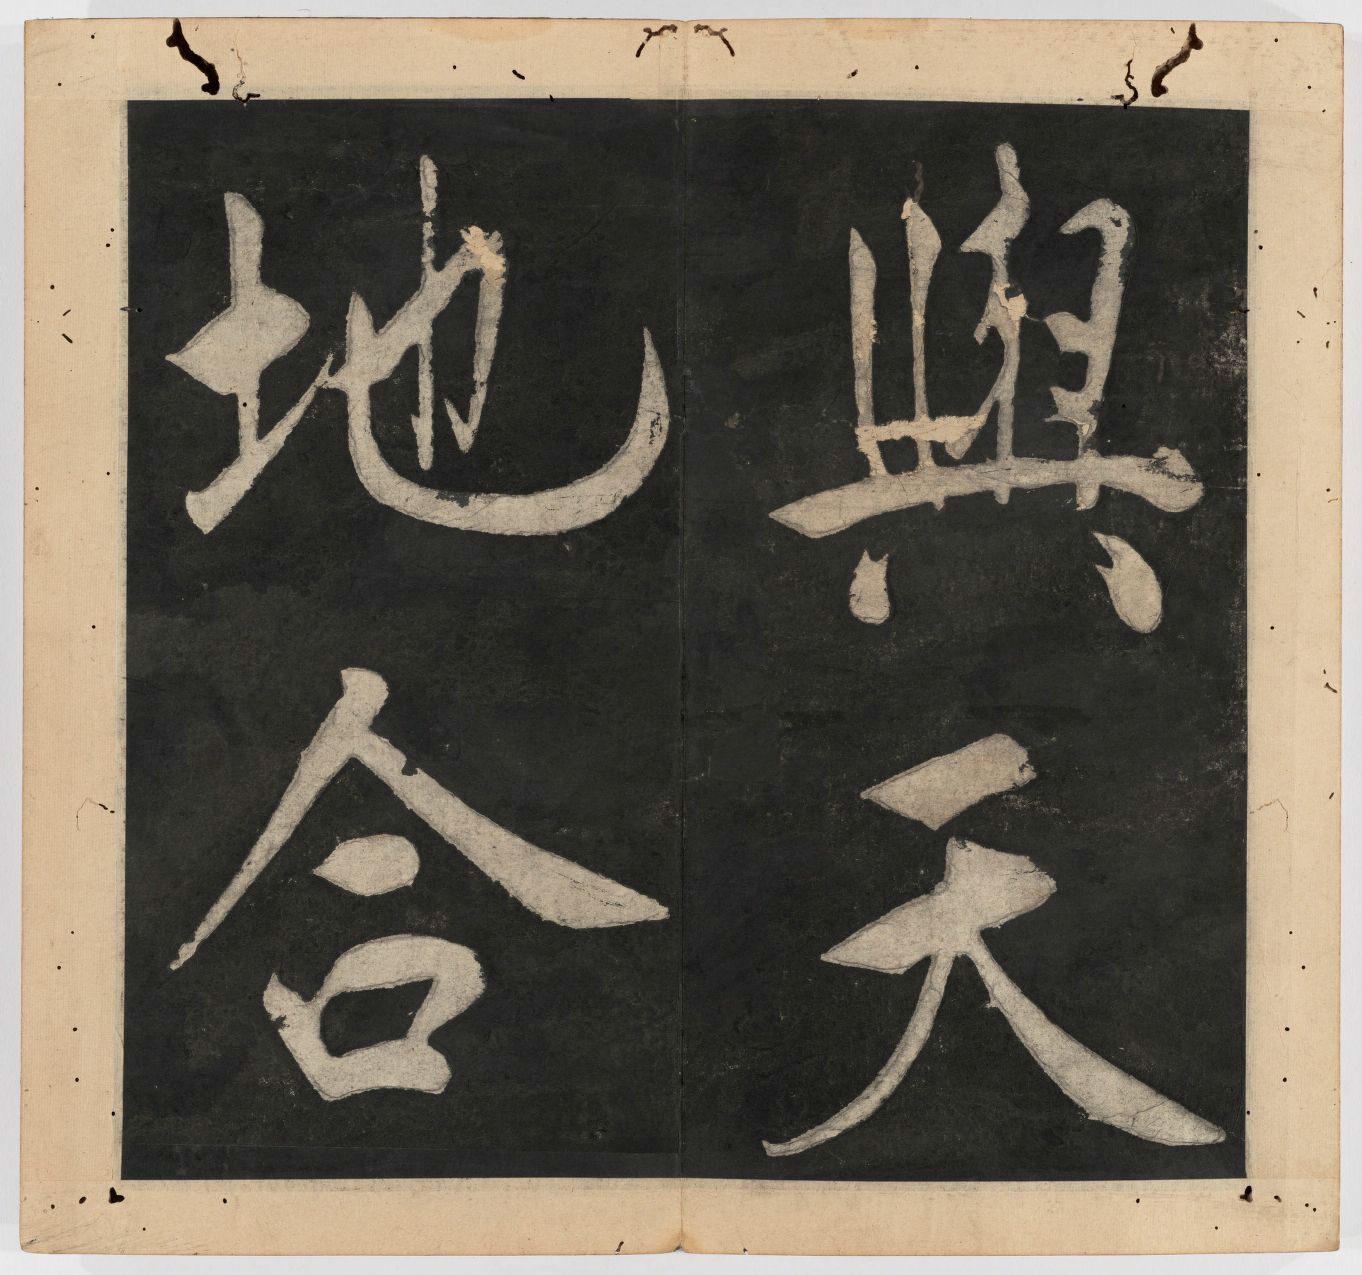 與天
地合